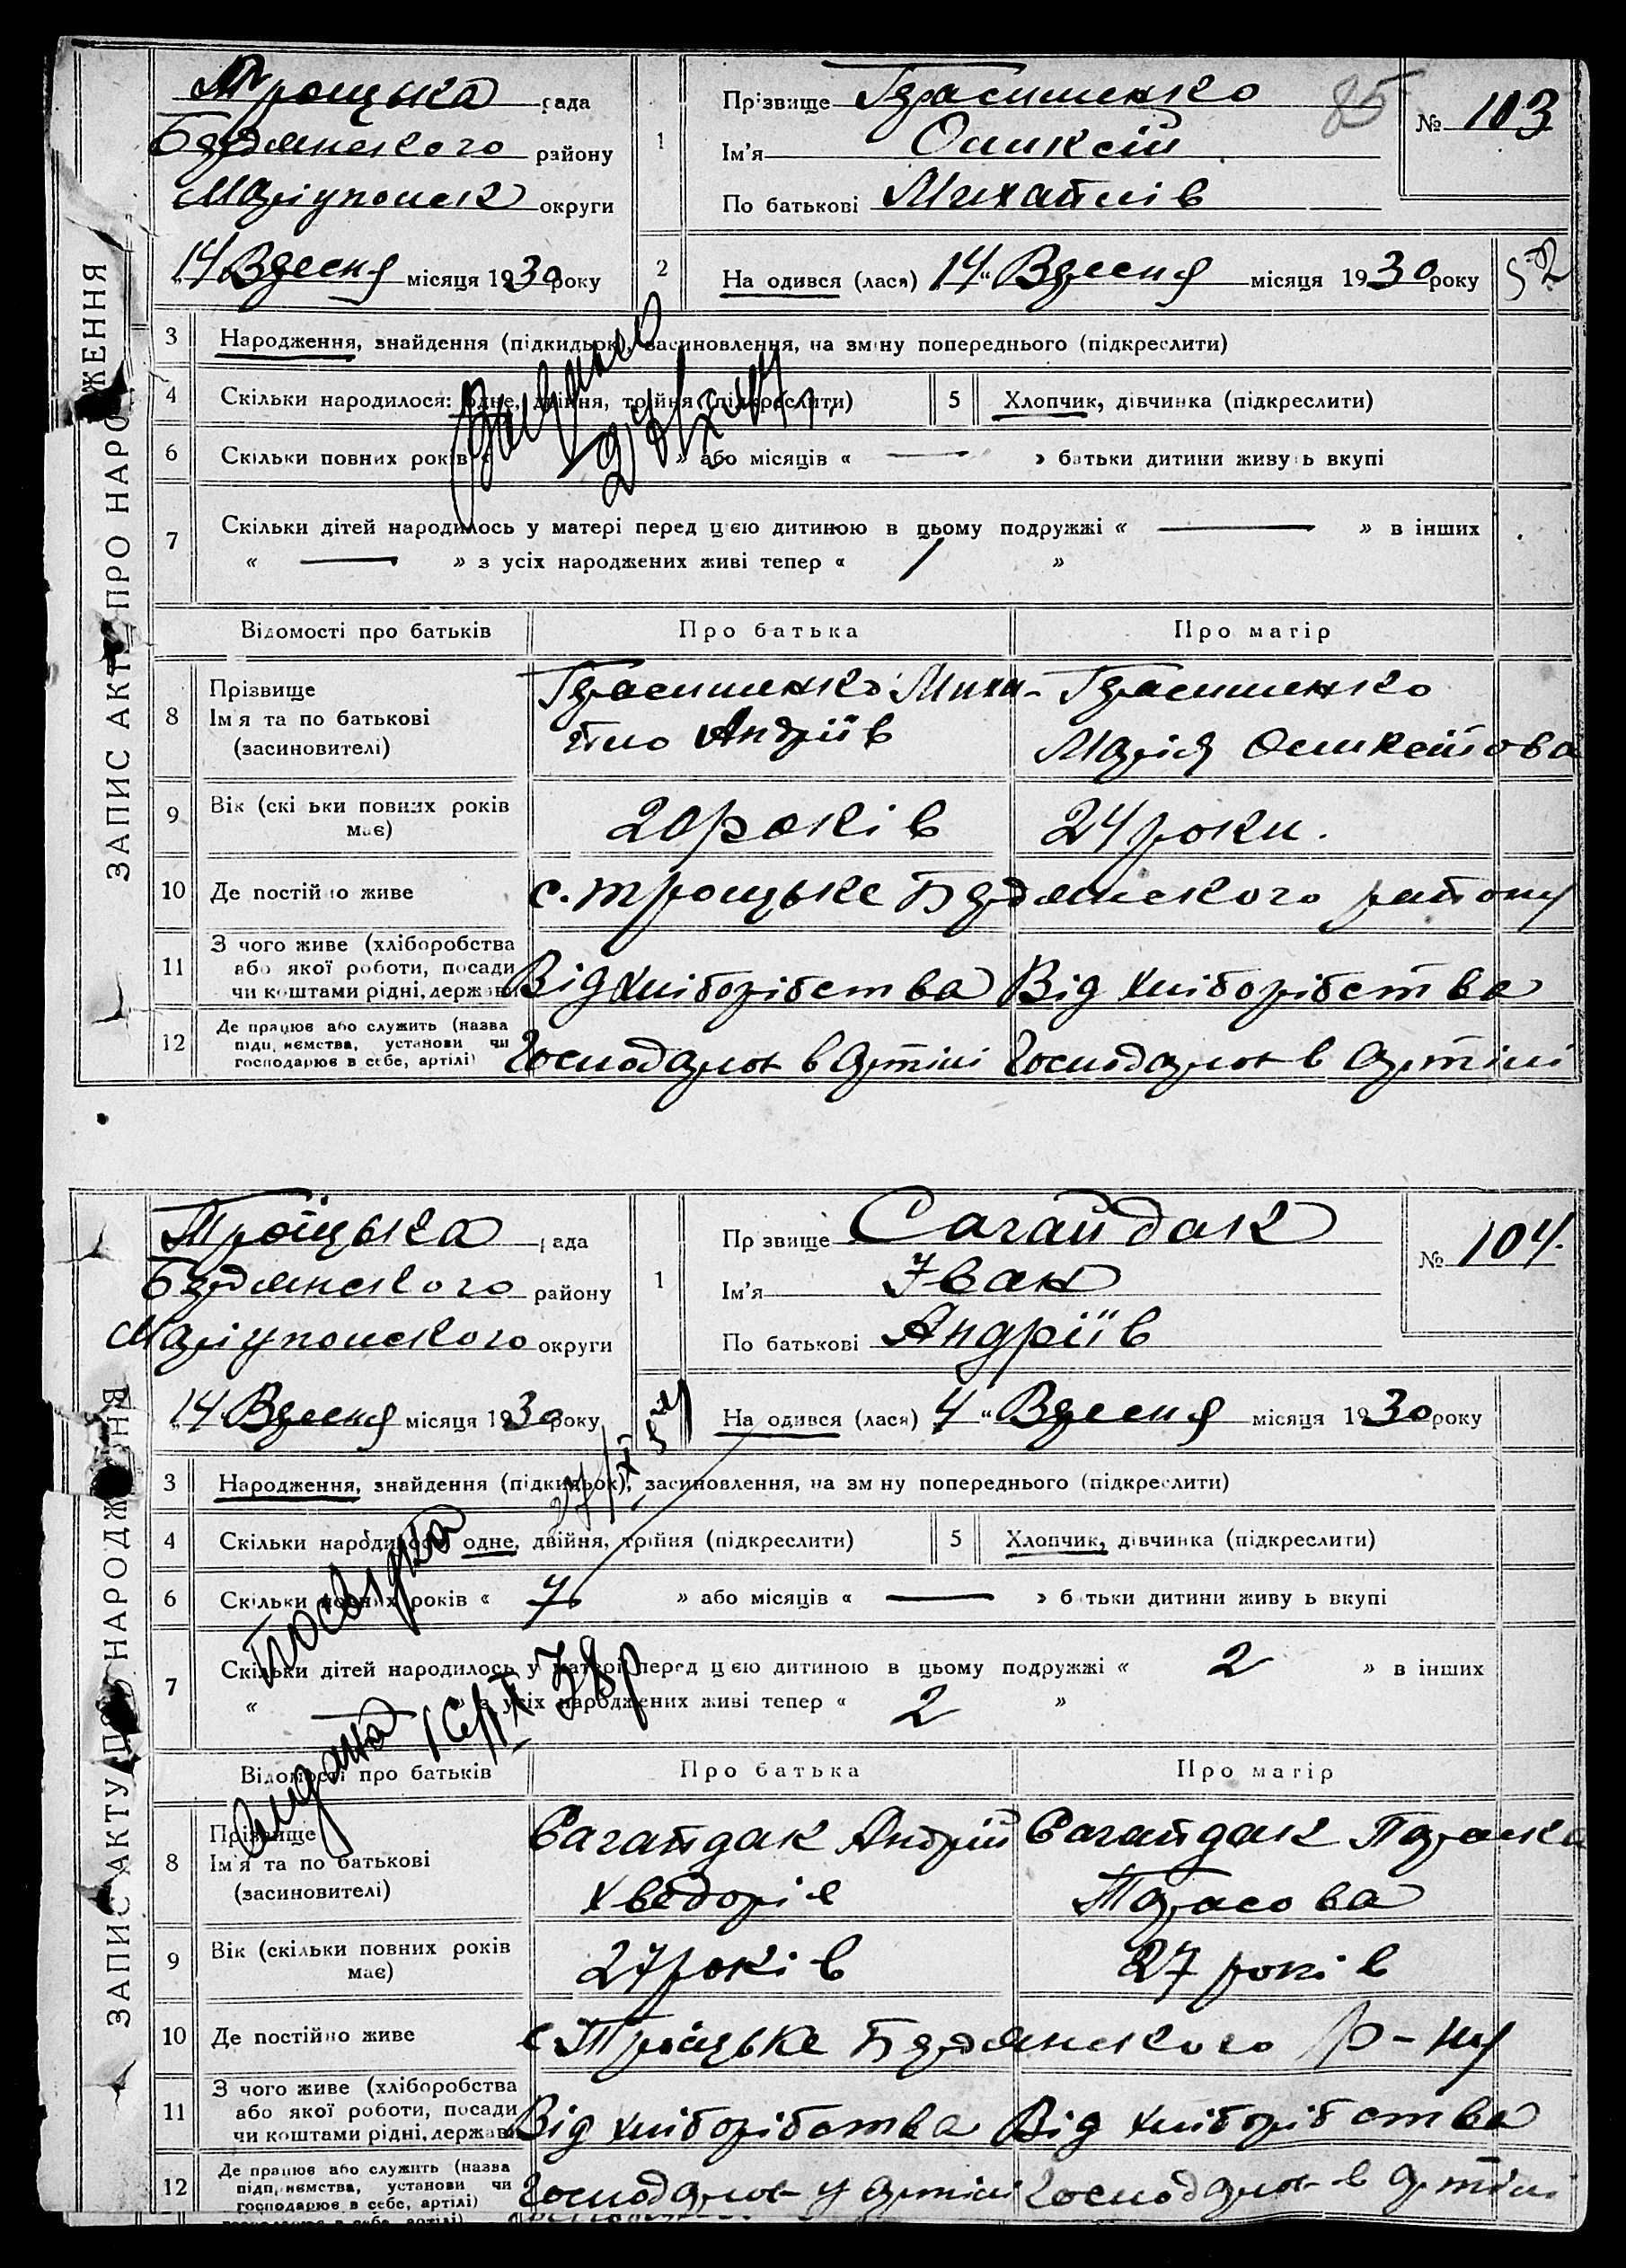 ЗАПИС АКТУ ПРО НАРОДЖЕННЯ
Троїцька рада
Бердянского району
Маріупольск округи
14 Вересня місяця 1930 року
1
Прізвище Герасименко
Ім'я Оликсій
По батькові Михайлів
85
№ 103
2
На одився (лася) 14 „ Вересня місяця 1930 року
3 Народження, знайдення (підкидьок), засиновлення, на зміну попереднього (підкреслити)
4 Скільки народилося: одне, двійня, трійня (підкреслити) 5 Хлопчик, дівчинка (підкреслити)
6 Скільки повних років « » або місяців « — » батьки дитини живуть вкупі
7 Скільки дітей народилось у матері перед цією дитиною в цьому подружжі « — » в інших
« — » з усіх народжених живі тепер « 1 »
Відомості про батьків Про батька Про матір
8 Прізвище
Ім'я та по батькові
(засиновителі)
Герасименко Миха-
йло Андріїв
Герасименко
Марія Оликсійова
9 Вік (скільки повних років має) 20 років 24 роки.
10 Де постійно живе с. Троїцьке Бердянского району
11 З чого живе (хліборобства
або якої роботи, посади
чи коштами рідні, держави
Від хліборібства Від хліборібства
12 Де працює або служить (назва
підприємства, установи чи
господарює в себе, артілі)
Господарює в артілі Господарює в артілі
ЗАПИС АКТУ ПРО НАРОДЖЕННЯ
Троїцька рада
Бердянского району
Маріупольского округи
14 Вересня місяця 1930 року
1
Прізвище Сагайдак
Ім'я Іван
По батькові Андріїв
№ 104.
На одився (лася) 4 „ Вересня місяця 1930 року
3 Народження, знайдення (підкидьок), засиновлення, на зм ну попереднього (підкреслити)
4 Скільки народилося: одне, двійня, трійня (підкреслити) 5 Хлопчик, дівчинка (підкреслити)
6 Скільки повних років « 7 » або місяців « — » батьки дитини живуть вкупі
7 Скільки дітей народилось у матері перед цією дитиною в цьому подружжі « 2 » в інших
« — » з усіх народжених живі тепер « 2 »
посвідка
видана 16/IX 38р
Відомості про батьків Про батька Про матір
8 Прізвище
Ім'я та по батькові
(засиновителі)
Сагайдак Андрій
Хведорів
Сагайдак Параска
Тарасова
9 Вік (скільки повних років має) 27 років 27 років
10 Де постійно живе с. Троїцьке Бердянского р-ну
11 З чого живе (хліборобства
або якої роботи, посади
чи коштами рідні, держави
Від хліборібства Від хліборібства
12 Де працює або служить (назва
підприємства, установи чи
господарює в себе, артілі)
Господарює у артілі Господарює в артілі